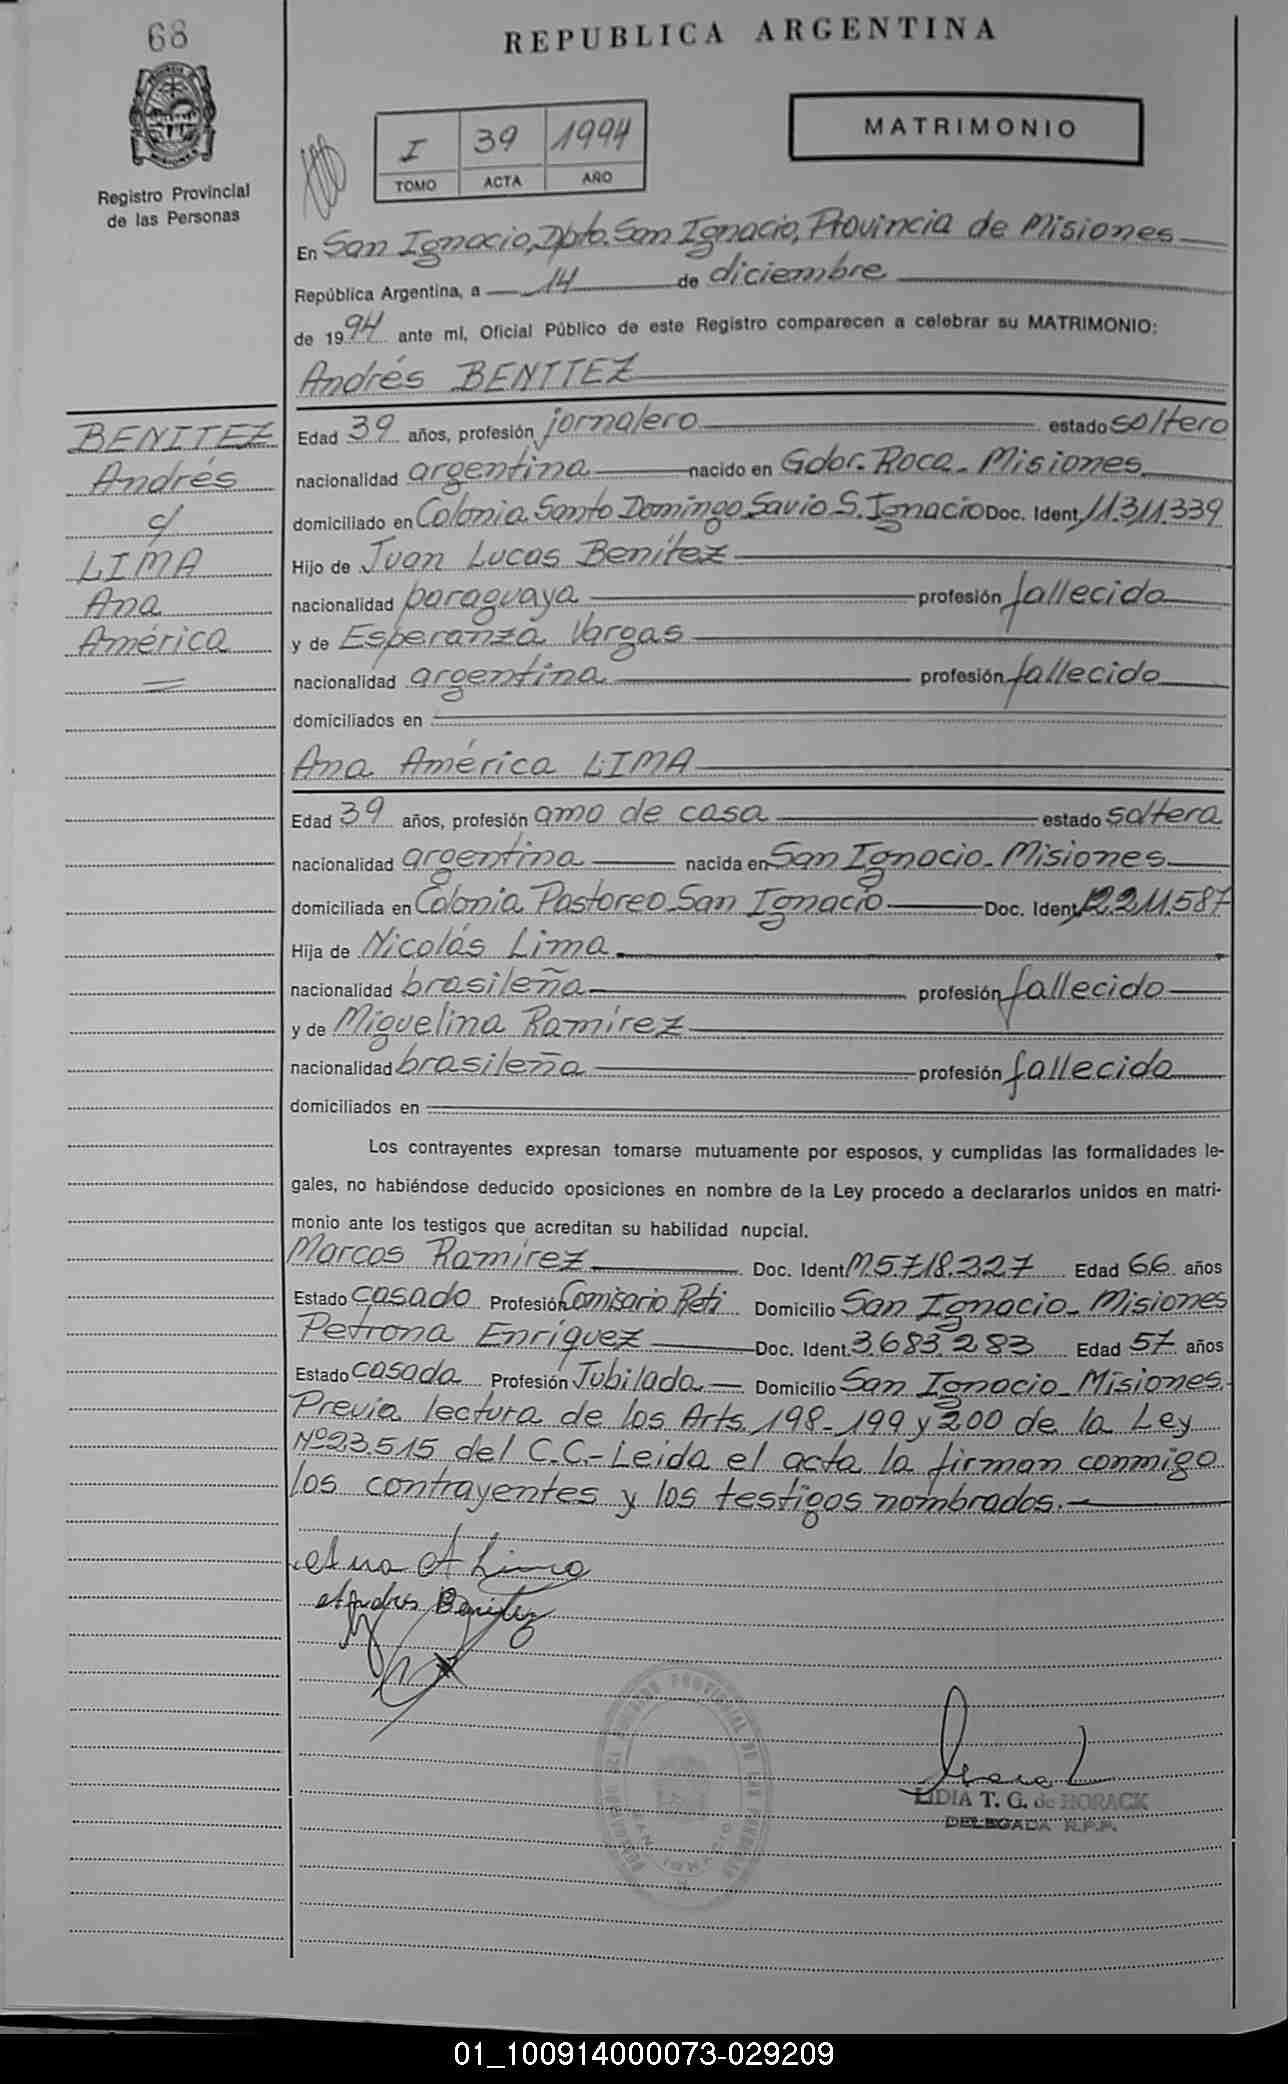 68
REPUBLICA ARGENTINA
MATRIMONIO
I 39 1994
TOMO ACTA AÑO
Registro Provincial
de las Personas
En San Ignacio, Dpto. San Ignacio, Provincia de Misiones
República Argentina, a 14 de diciembre
de 1994 ante mí, Oficial Público de este Registro comparecen a celebrar su MATRIMONIO:
Andrés BENITEZ
BENITEZ
Andrés
c/
LIMA
Ana
América
Edad 39 años, profesión jornalero estado soltero
nacionalidad argentina nacido en Gdor. Roca - Misiones
domiciliado en Colonia Santo Domingo Savio S. Ignacio Doc. Ident. 11.311.339
Hijo de Juan Lucas Benítez
nacionalidad paraguaya profesión fallecido
y de Esperanza Vargas
nacionalidad argentina profesión fallecida
domiciliados en
Ana América LIMA
Edad 39 años, profesión ama de casa estado soltera
nacionalidad argentina nacida en San Ignacio - Misiones
domiciliada en Colonia Pastoreo - San Ignacio Doc. Ident. 12.211.587
Hija de Nicolás Lima
nacionalidad brasileña profesión fallecido
y de Miguelina Ramírez
nacionalidad brasileña profesión fallecida
domiciliados en
Los contrayentes expresan tomarse mutuamente por esposos, y cumplidas las formalidades le-
gales, no habiéndose deducido oposiciones en nombre de la Ley procedo a declararlos unidos en matri-
monio ante los testigos que acreditan su habilidad nupcial.
Marcos Ramírez Doc. Ident M.5.718.327 Edad 66 años
Estado casado Profesión Comisario Reti Domicilio San Ignacio - Misiones
Petrona Enríquez Doc. Ident. 3.683.283 Edad 57 años
Estado casada Profesión Jubilada Domicilio San Ignacio - Misiones.
Previa lectura de los Arts. 198 - 199 y 200 de la Ley
Nº 23.515 del C.C.- Leida el acta la firman conmigo
los contrayentes y los testigos nombrados.-
Ana A Lima
Andres Benitez
LIDIA T. G. de HORACK
DELEGADA R.P.P.
01_100914000073-029209